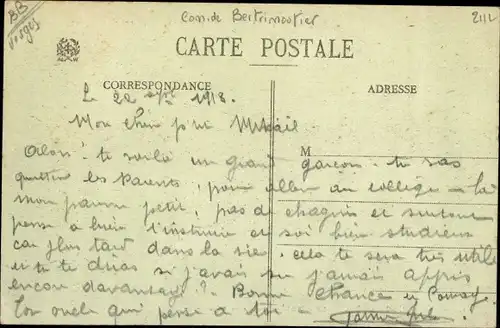 BB
Vosges
Com. de Bertrimoutier
2112
CARTE POSTALE
CORRESPONDANCE
ADRESSE
Le 22 1918.
Mon cher p'tit
M
Alors te voilà un grand garçon. tu vas
quitter les Parents, pour aller au collège - la
mon pauvre petit, pas de chagrin et surtout
pense à bien t'instruire et soi bien studieux
car plus tard dans la vie, cela te sera très utile
et tu te diras si j'avais su j'aurais appris
encore davantage! - Bonne chance et Courage
Ton oncle qui pense à toi -